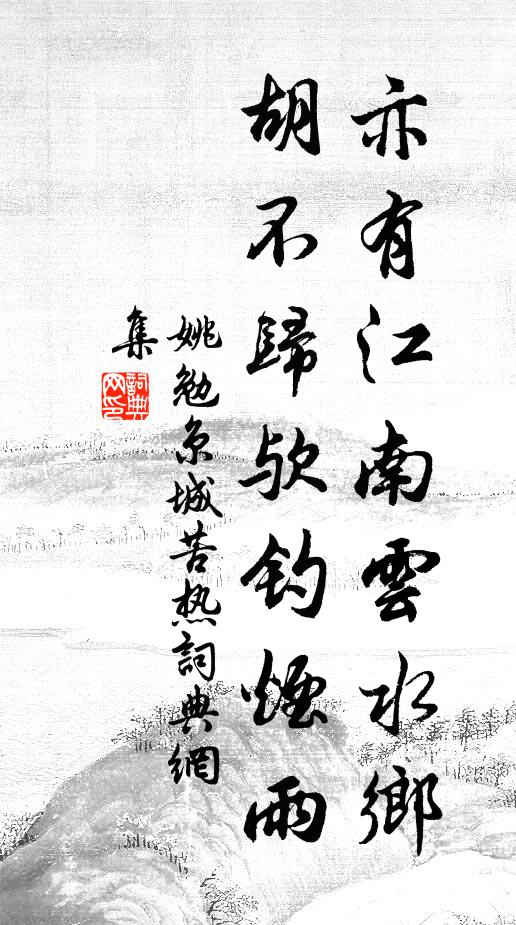 亦有江南雲水鄉
胡不歸歟釣煙雨
姚勉京城苦热詞典網
集
詞典網印